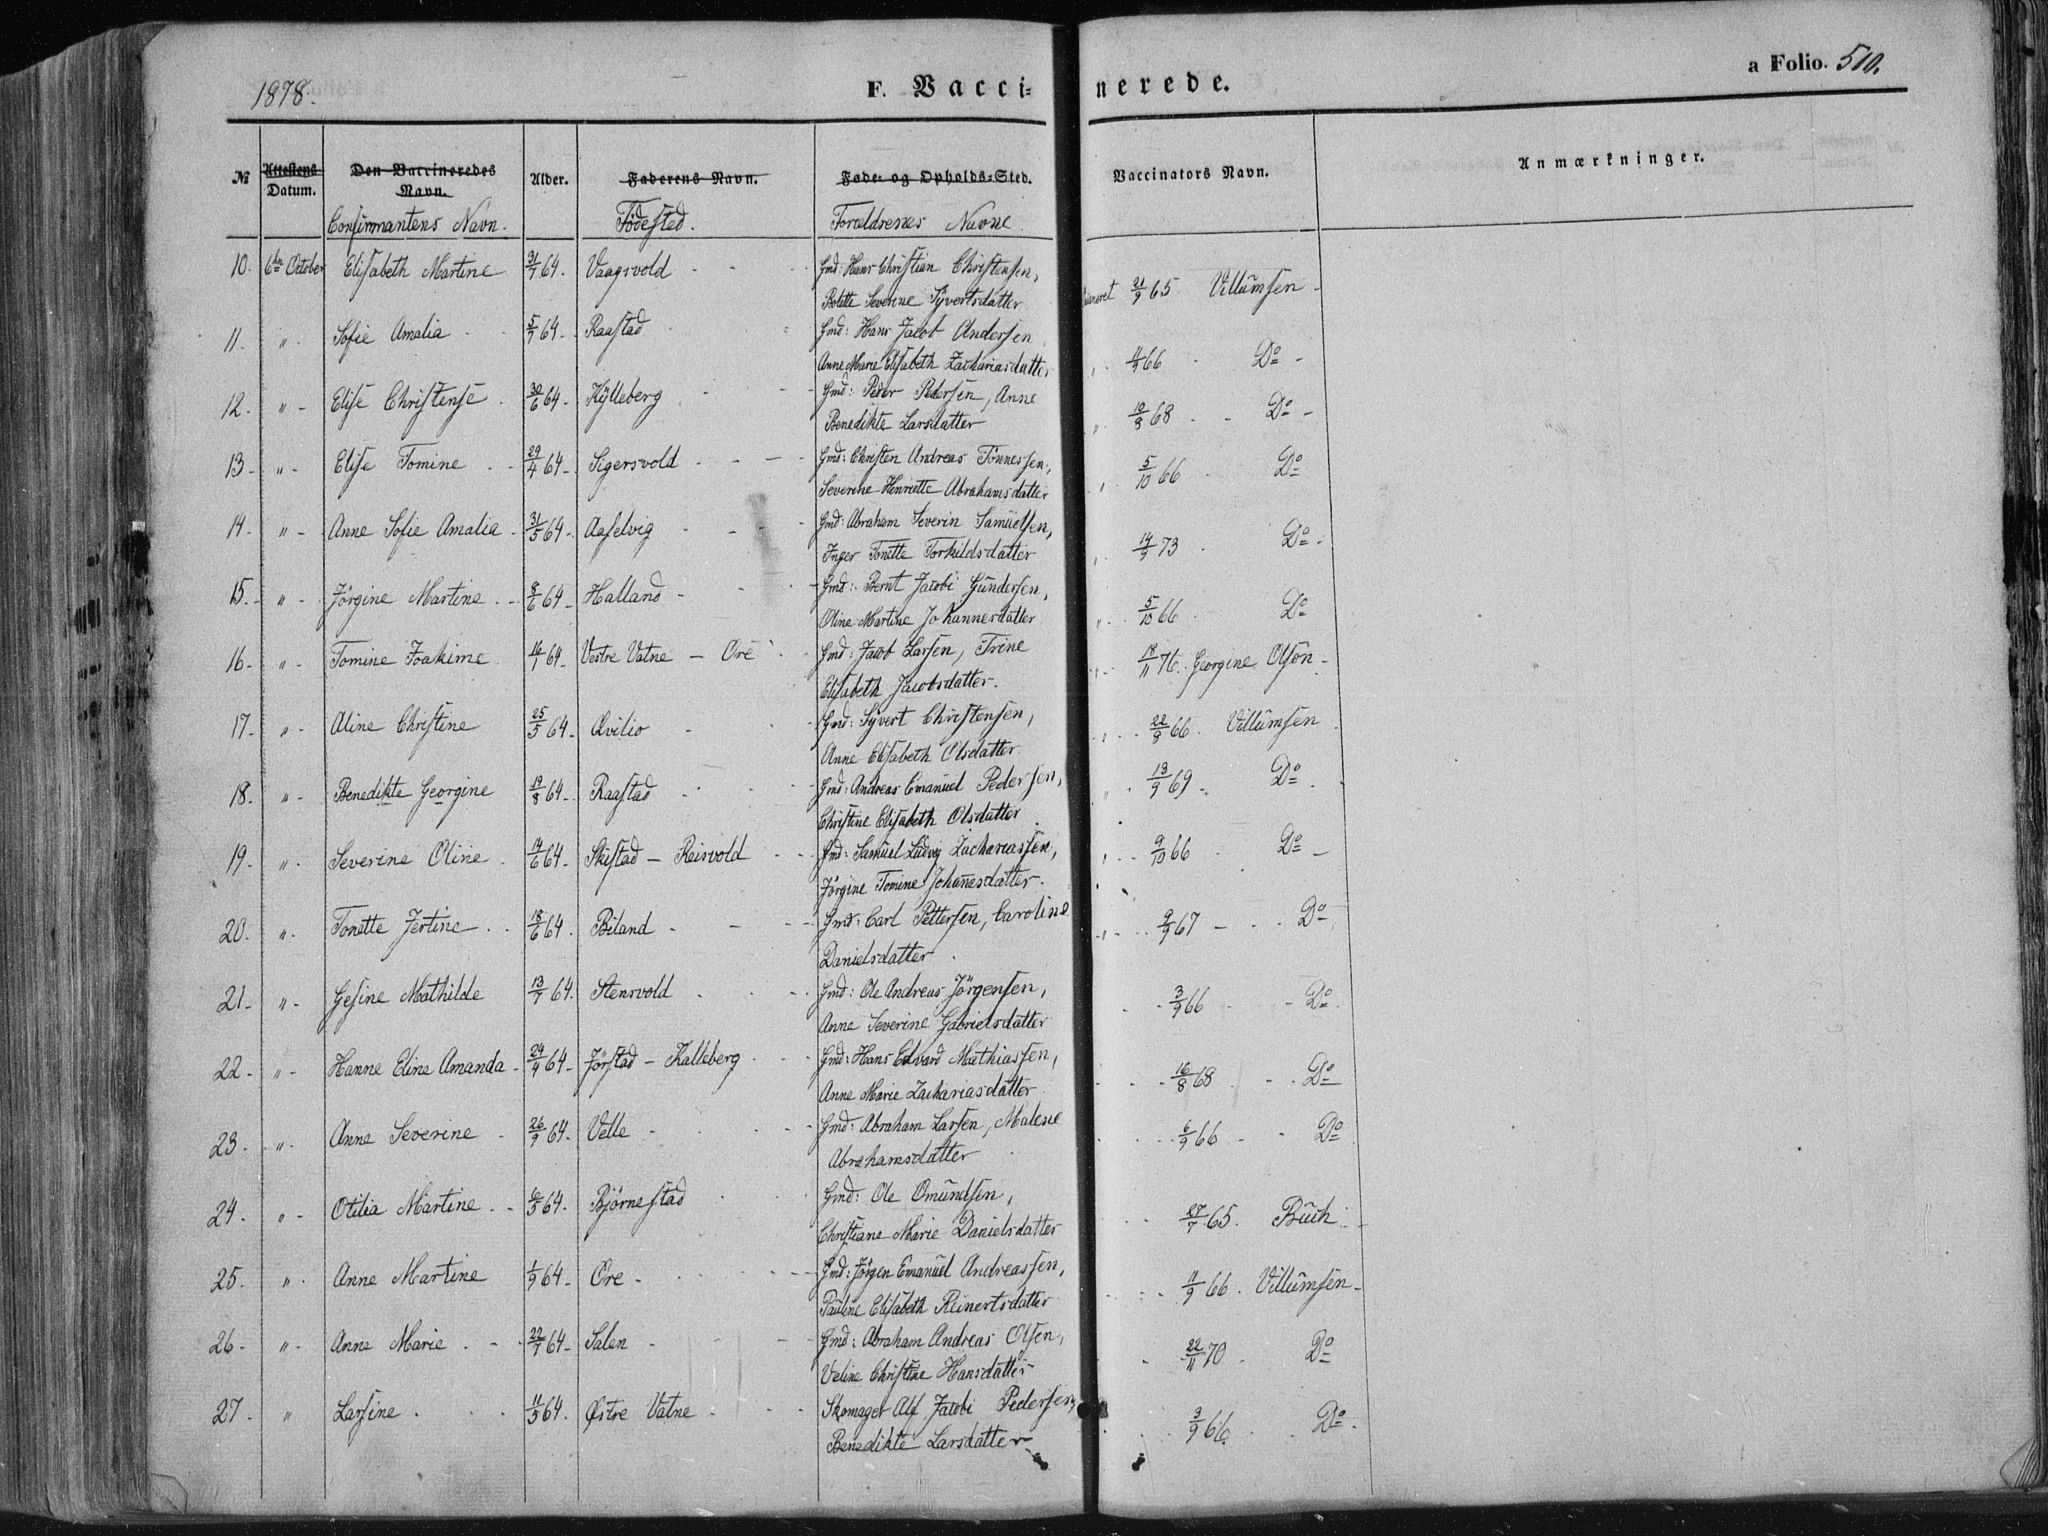 1878.
F. Vaccinerede.
a Folio. 510.
№ Attestens Datum. Den Vaccineredes Navn. Alder. Faderens Navn. Føde- og Opholds-Sted. Vaccinators Navn. Anmærkninger.
Confirmantens Navn. Födested. Forældrenes Navne
10. 6te October Elisabeth Martine 31/7 64. Vaagsvold Gmd: Hans Christian Christensen, 21/9 65 Villumsen
Bolette Severine Syvertsdatter
11. " Sofie Amalia 5/7 64. Raastad Gmd: Hans Jacob Andersen 4/9 66 Do
Anne Marie Elisabeth Zachariasdatter
12. " Elise Christense 30/6 64. Hylleberg Gmd: Peder Pedersen, Anne 10/8 68 Do
Benedikte Larsdatter
13. " Elise Tomine 29/4 64. Sigersvold Gmd: Christen Andreas Tönnessen, 5/10 66 Do
Severine Henriette Abrahamsdatter
14. " Anne Sofie Amalia 31/5 64. Aaselvig Gmd: Abraham Severin Samuelsen, 14/9 73 Do
Inger Tonette Torkildsdatter
15. " Jörgine Martine 8/6 64. Halland Gmd: Bernt Jacobi Gundersen, 5/10 66 Do
Oline Martine Johannesdatter
16. " Tomine Joakime 16/1 64. Vestre Vatne - Ore Gmd: Jacob Larsen, Trine 18/11 76. Georgine Olson
Elisabeth Jacobsdatter.
17. " Aline Christine 25/5 64. Qvilio Gmd: Syvert Christensen, 22/8 66. Villumsen
Anne Elisabeth Olsdatter.
18. " Benedikte Georgine 19/8 64. Raastad Gmd: Andreas Emanuel Pedersen, 13/9 69 Do
Christine Elisabeth Olsdatter.
19. " Severine Oline 14/6 64. Skistad - Reisvold Gmd: Samuel Ludvig Zachariassen, 9/10 66 Do
Jörgine Tomine Johannesdatter.
20. " Tonette Jertine 18/6 64. Biland Gmd: Carl Pettersen, Caroline 9/9 67 Do
Danielsdatter.
21. " Gesine Mathilde 13/7 64. Stensvold Gmd: Ole Andreas Jörgensen, 3/9 66 Do
Anne Severine Gabrielsdatter
22. " Hanne Eline Amanda 24/4 64. Jörstad - Kalleberg Gmd: Hans Edvard Mathiassen, 16/8 68 Do
Anne Marie Zachariasdatter
23. " Anne Severine 26/9 64. Velle Gmd: Abraham Larsen, Malene 6/9 66 Do
Abrahamsdatter
24. " Otilia Martine 6/5 64. Björnestad Gmd: Ole Omundsen, 27/7 65. Buch
Christiane Marie Danielsdatter
25. " Anne Martine 1/9 64. Ore Gmd: Jörgen Emanuel Andreassen, 11/9 66. Villumsen
Pauline Elisabeth Reinertsdatter
26. " Anne Marie 22/7 64. Salen Gmd: Abraham Andreas Olsen, 22/11 70 Do
Veline Christine Hansdatter
27. " Larsine 11/5 64. Østre Vatne Skomager Alf Jacobi Pedersen, 3/9 66. Do
Benedikte Larsdatter